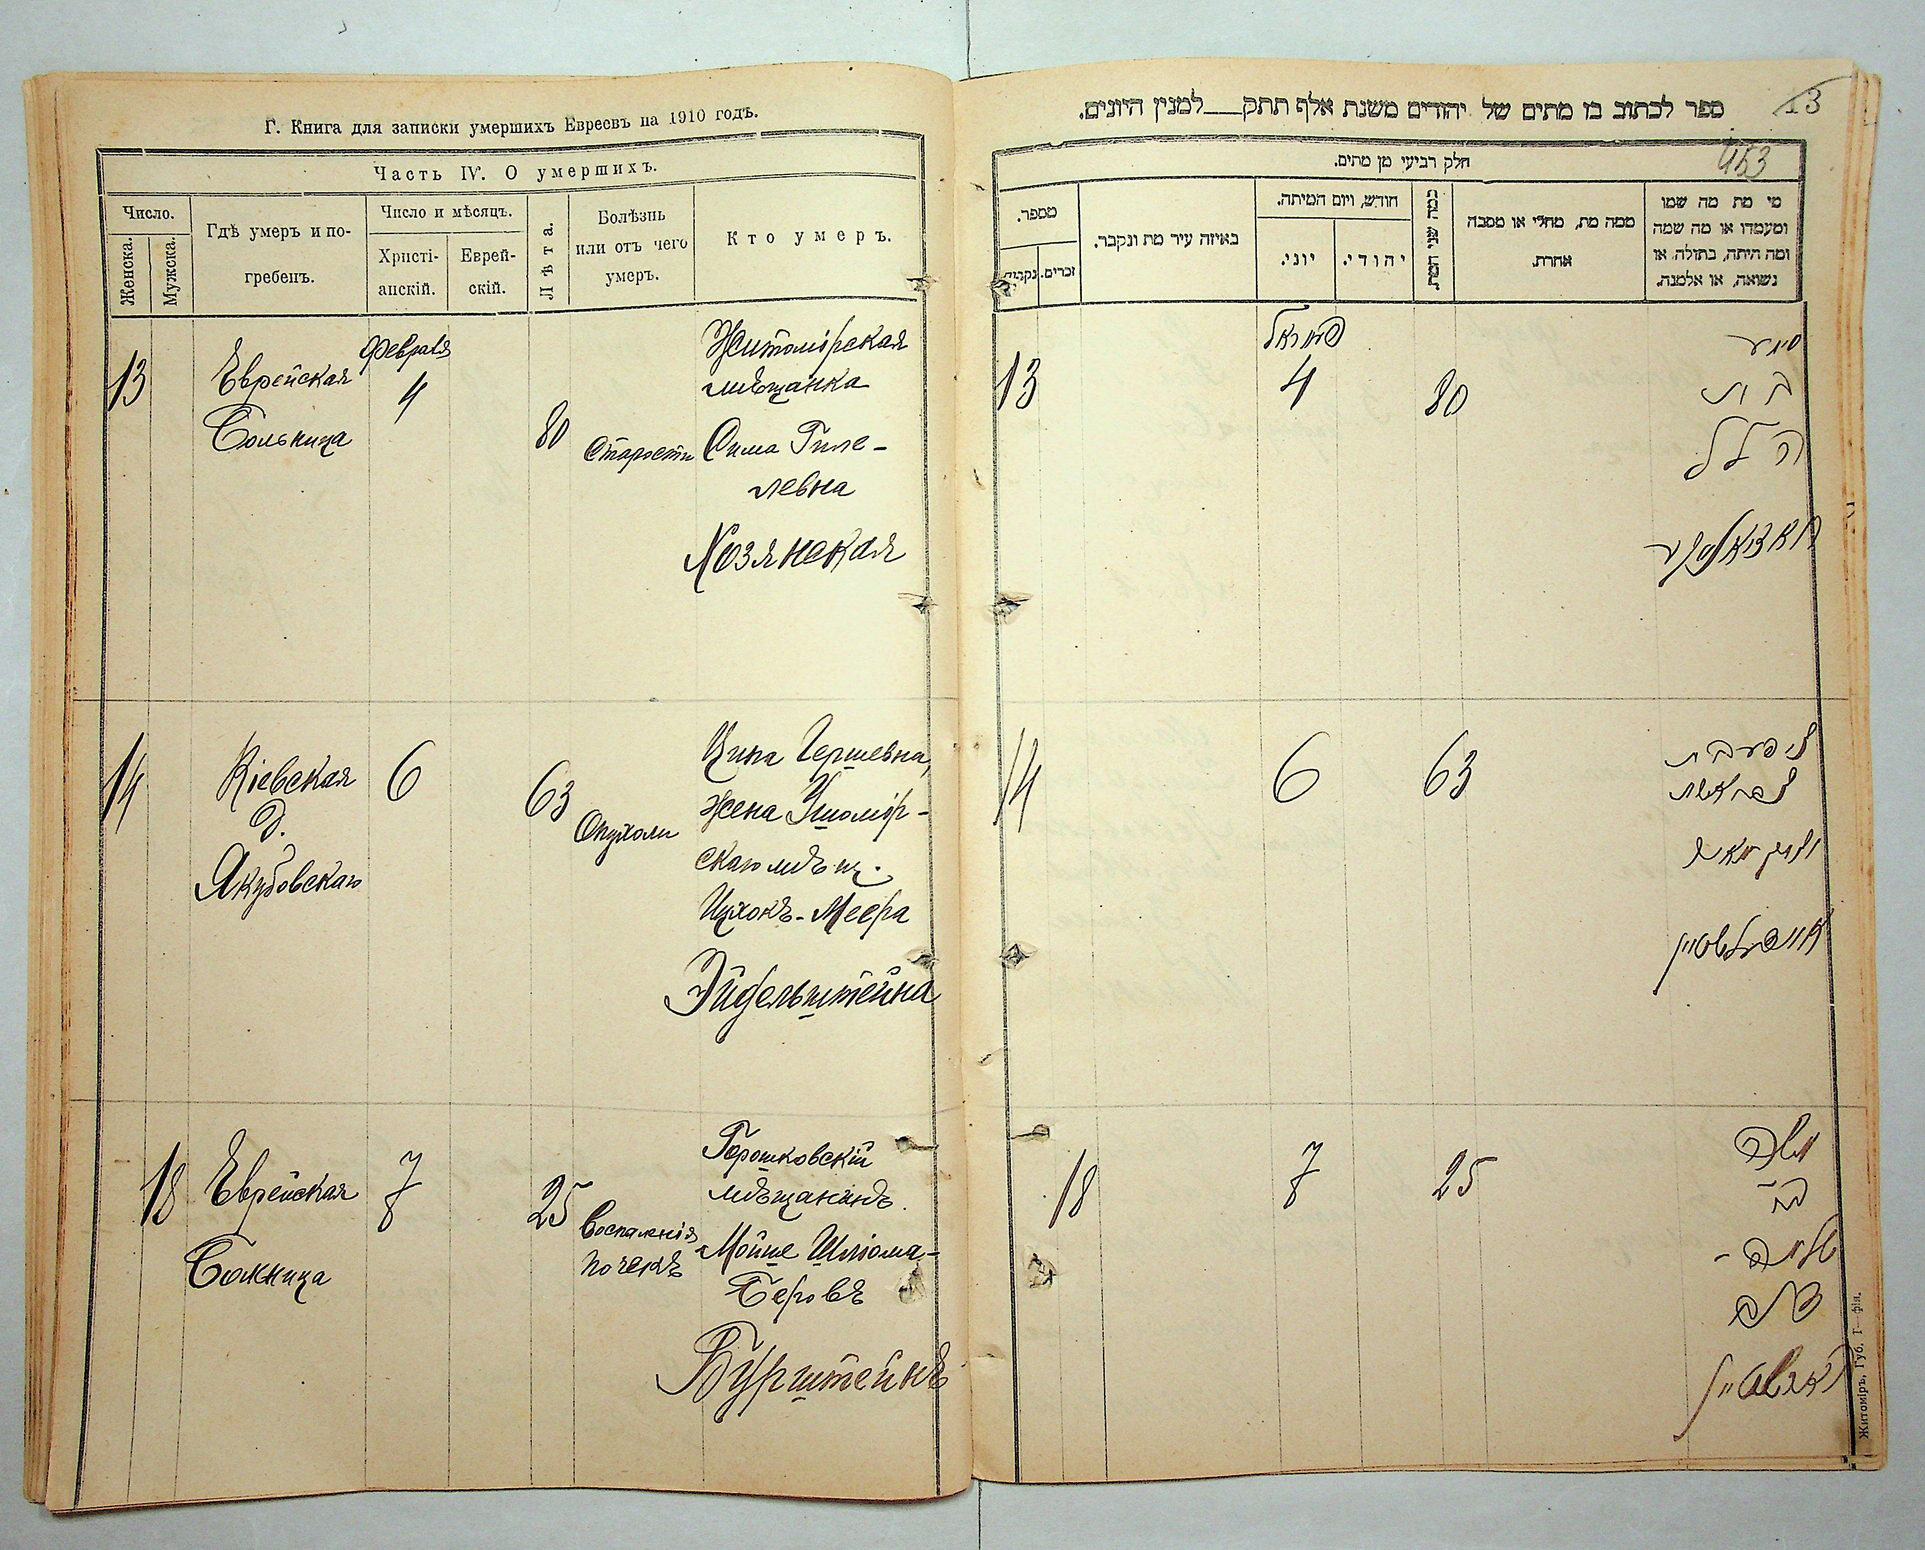 Г. Книга для записки умершихъ Евреевъ на 1910 годъ.
Часть IV. О умершихъ.
Число.
Женска.
Мужска.
Гдѣ умеръ и по-
гребенъ.
Число и мѣсяцъ.
Христі-
анскій.
Еврей-
скій.
Лѣта.
Болѣзнь
или отъ чего
умеръ.
Кто умеръ.
13
Еврейская
Больница
Февраля
4
80
Старости
Житомірская
мѣщанка
Сима Гиле-
левна
Хозянская
14
Кіевская
д.
Якубовскаго
6
63
Опухоли
Ципа Гершевна,
жена Ушомір-
скаго мѣщ.
Ицхокъ-Меера
Эйдельштейна
18
Еврейская
Больница
7
25
Воспаленія
почекъ
Горошковскій
мѣщанинъ
Мойше Шліома-
Беровъ
Бурштейнъ
ספר לכתוב בו מתים של יהודים משנת אלף תתק___למנין היונים.
13
453
חלק רביעי מן מתים.
מספר.
נקבות.
זכרים.
באיזה עיר מת ונקבר.
חודש, ויום המיתה.
יוני.
יהודי.
כמה שני המת.
ממה מת, מחלי או מסבה
אחרת.
מי מת מה שמו
ומעמדו או מה שמה
ומה היתה, בתולה או
נשואה, או אלמנה.
13
4
80
סימע
בת
הלל
14
6
63
איידעלשטיין
18
7
25
משה
ב"ר
שלמה-
בער
בורשטיין
Житоміръ, Губ. Т—фія.